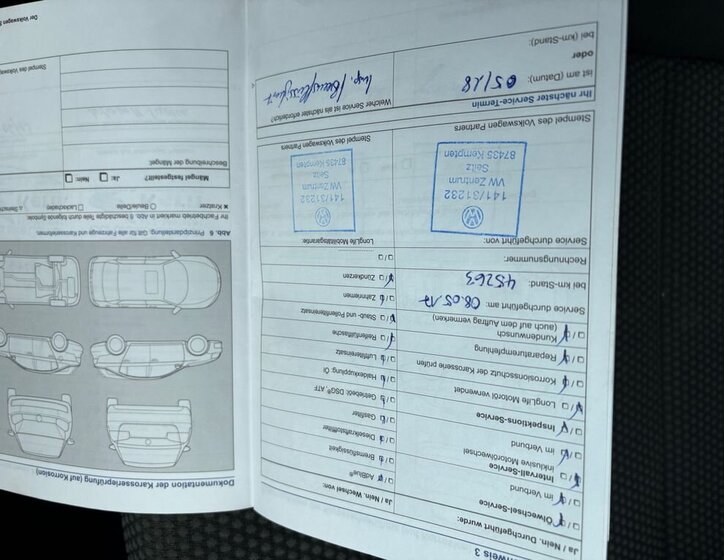 weis 3
Ja / Nein. Durchgeführt wurde:
Ölwechsel-Service
im Verbund
Intervall-Service
inklusive Motorölwechsel
im Verbund
Inspektions-Service
LongLife Motoröl verwendet
Korrosionsschutz der Karosserie prüfen
Reparaturempfehlung
Kundenwunsch
(auch auf dem Auftrag vermerken)
Service durchgeführt am: 08.05.17
bei km-Stand: 45263
Rechnungsnummer:
Service durchgeführt von:
141/31232
VW Zentrum
Seitz
87435 Kempten
Stempel des Volkswagen Partners
Ja / Nein. Wechsel von:
AdBlue®
Bremsflüssigkeit
Dieselkraftstofffilter
Gasfilter
Getriebeöl: DSG®, ATF
Haldexkupplung: Öl
Luftfiltereinsatz
Reifenfüllflasche
Staub- und Pollenfiltereinsatz
Zahnriemen
Zündkerzen
LongLife Mobilitätsgarantie:
141/31232
VW Zentrum
Seitz
87435 Kempten
Stempel des Volkswagen Partners
Ihr nächster Service-Termin
ist am (Datum): 05/18
oder
bei (km-Stand):
Welcher Service ist als nächster erforderlich?
Insp. / Bremsflüssigkeit
Dokumentation der Karosserieprüfung (auf Korrosion)
Abb. 6 Prinzipdarstellung: Gilt für alle Fahrzeuge und Karosserieformen.
Ihr Fachbetrieb markiert in Abb. 6 beschädigte Teile durch folgende Symbole:
× Kratzer
○ Beule/Delle
□ Lackschaden
Mängel festgestellt?
Ja:
Nein:
Beschreibung der Mängel:
Stempel des Volkswag
Der Volkswagen S